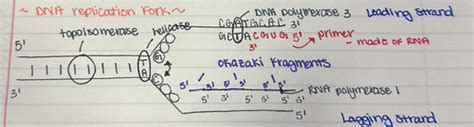 ~ DNA replication Fork ~
DNA polymerase 3 Leading Strand
topoisomerase helicase
5' 3'
primer - made of RNA
T A
Okazaki fragments
5' 3' 5' 3' 5' 3'
RNA polymerase 1
3' 5'
Lagging Strand